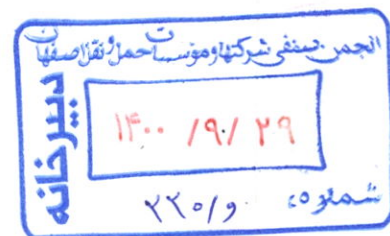 انجمن صنفی شرکتها و مؤسسات حمل و نقل اصفهان
دبیرخانه
۱۴۰۰ /۹۰/ ۲۹
شماره ۲۲۰/۹